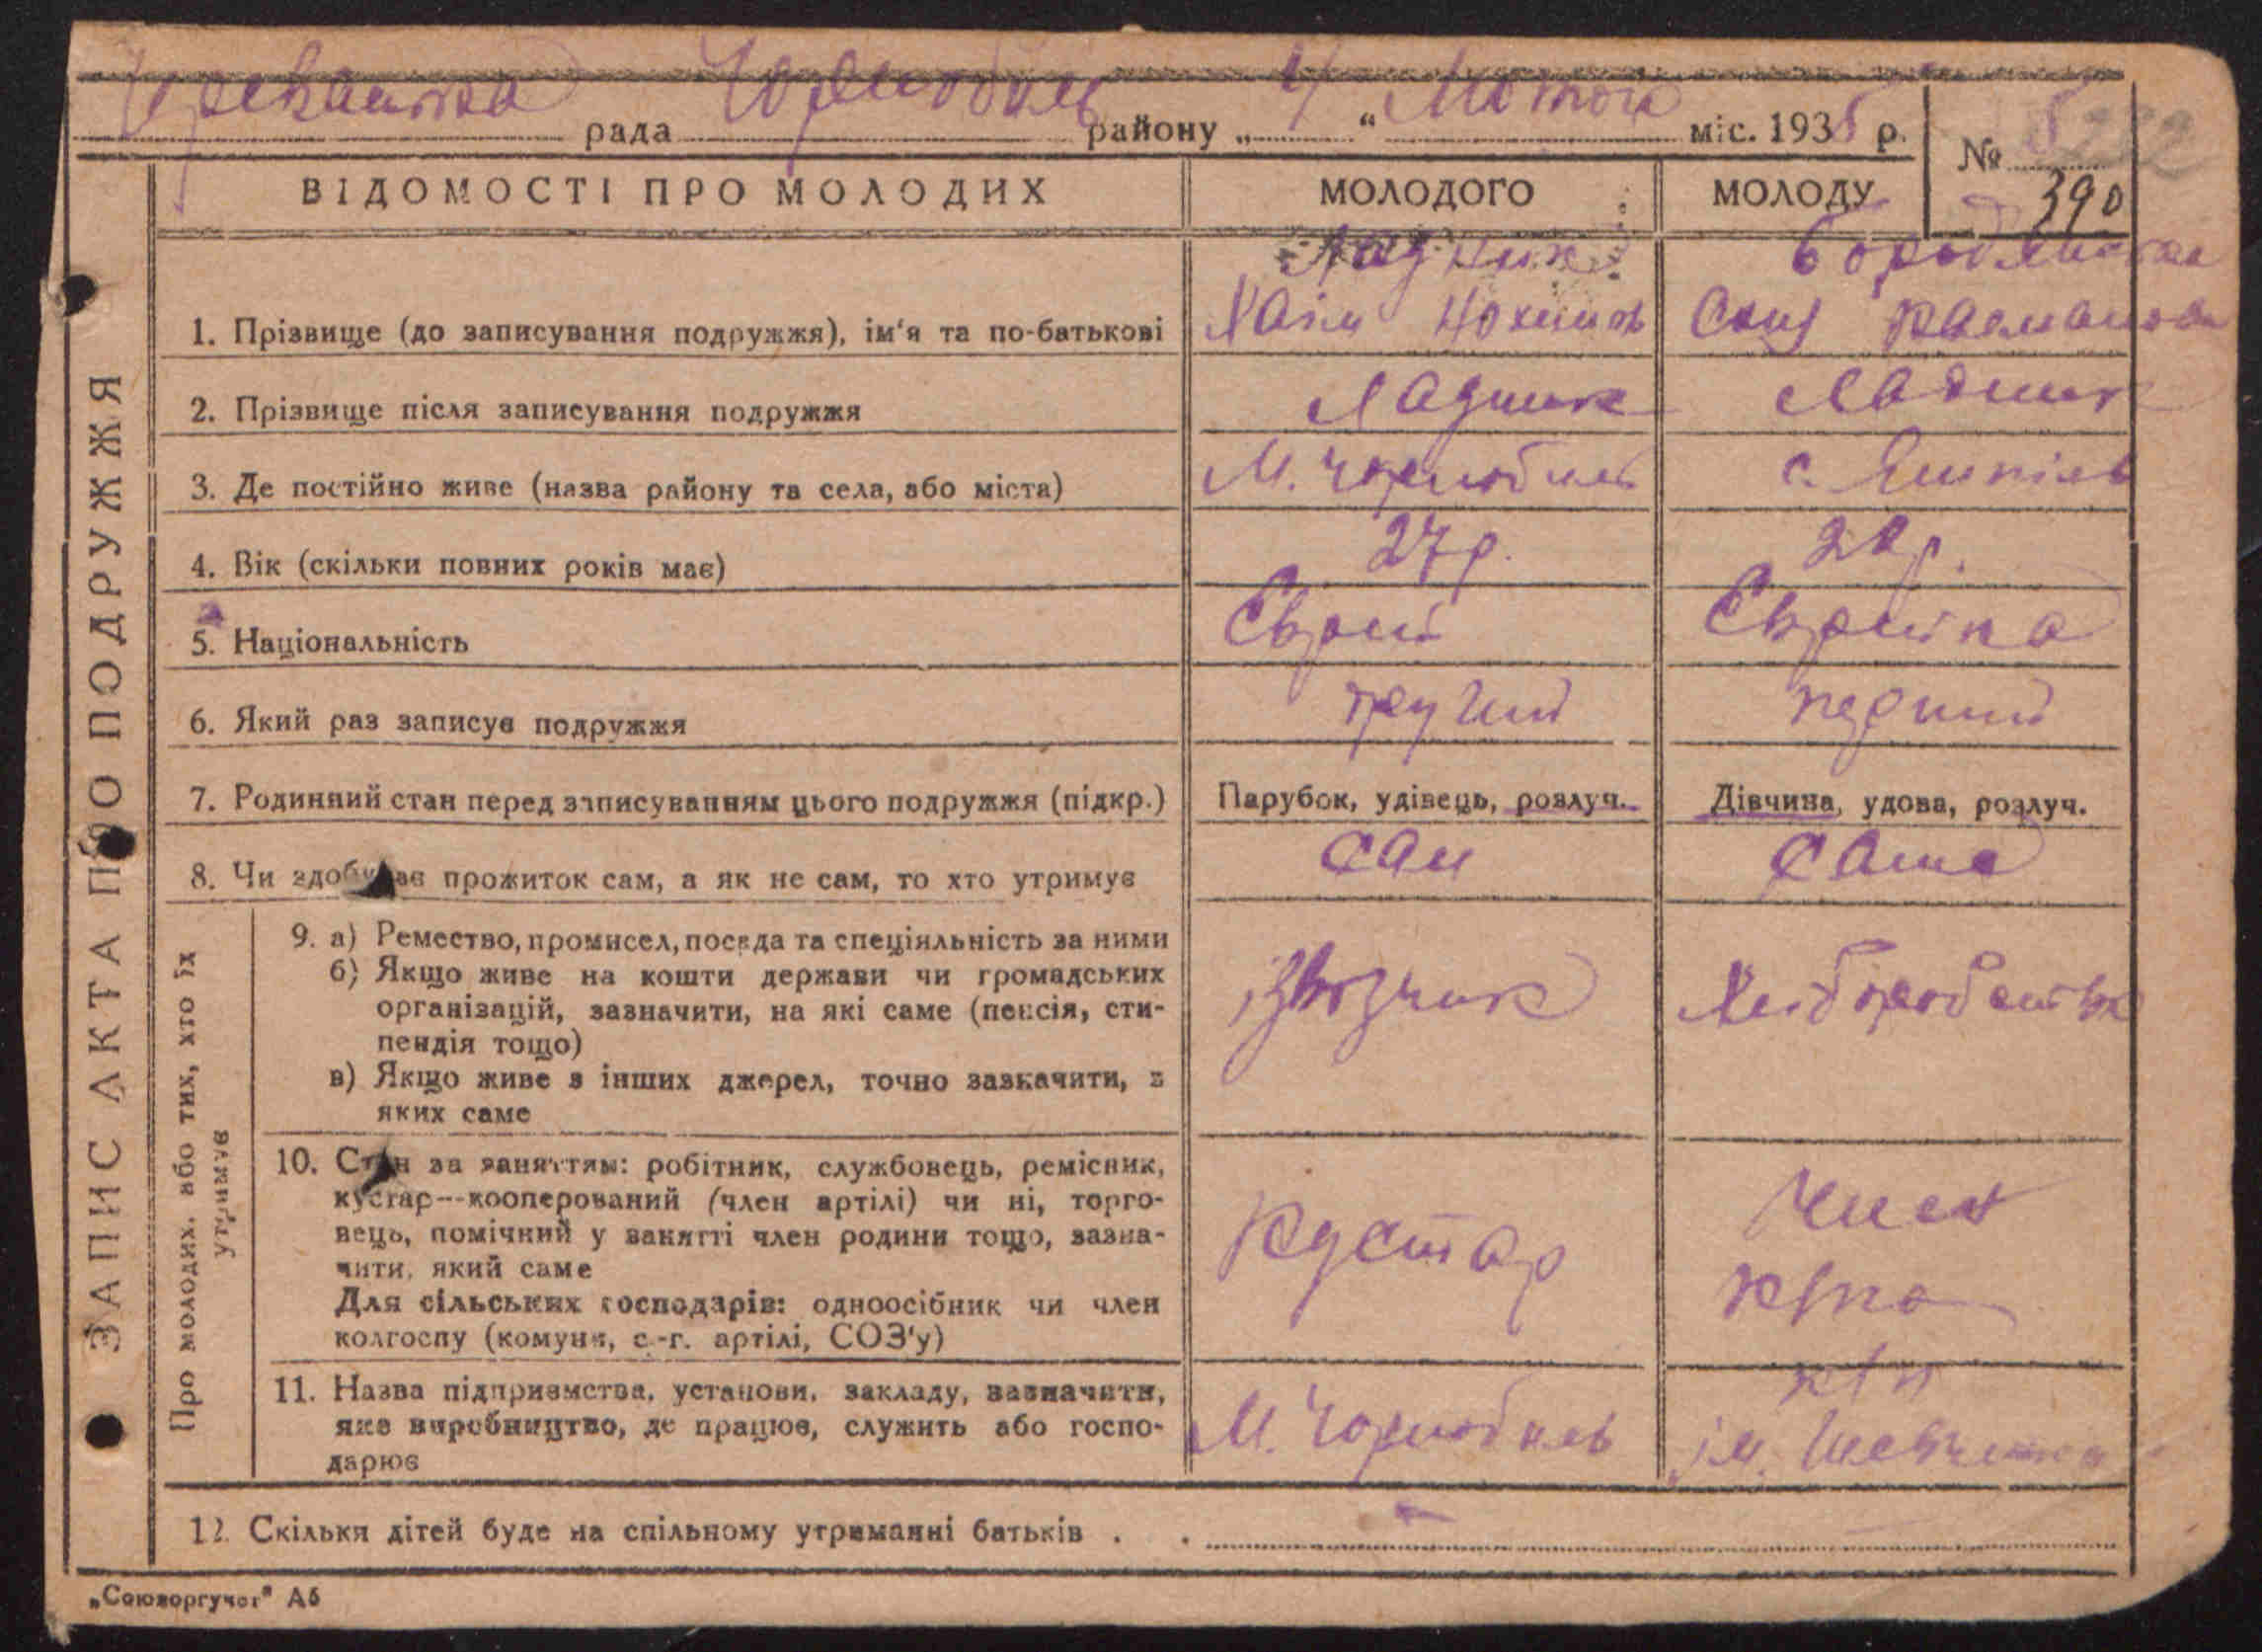 рада Чорнобиль району „ 4 “ Лютого міс. 1935 р.
№ 5
252
390
ЗАПИС АКТА ПРО ПОДРУЖЖЯ
ВІДОМОСТІ ПРО МОЛОДИХ МОЛОДОГО МОЛОДУ
Ладник Бородянская
1. Прізвище (до записування подружжя), ім'я та по-батькові Хаім Нохимов
2. Прізвище після записування подружжя Ладник Ладник
3. Де постійно живе (назва району та села, або міста) М. Чорнобиль с.
4. Вік (скільки повних років має) 27 р. р.
5. Національність Єврей Єврейка
6. Який раз записує подружжя другий перший
7. Родинний стан перед записуванням цього подружжя (підкр.) Парубок, удівець, розлуч. Дівчина, удова, розлуч.
8. Чи здобуває прожиток сам, а як не сам, то хто утримує сам сама
Про молодих, або тих, хто їх утримує
9. а) Ремество, промисел, посада та спеціяльність за ними
б) Якщо живе на кошти держави чи громадських
організацій, зазначити, на які саме (пенсія, сти-
пендія тощо)
в) Якщо живе з інших джерел, точно зазначити, з
яких саме
ізвозчик Хліборобство
10. Стан за заняттям: робітник, службовець, ремісник,
кустар--кооперований (член артілі) чи ні, торго-
вець, помічний у занятті член родини тощо, зазна-
чити, який саме
Для сільських господарів: одноосібник чи член
колгоспу (комуни, с.-г. артілі, СОЗ'у)
Кустар Член
11. Назва підприємства, установи, закладу, зазначити,
яке виробництво, де працює, служить або госпо-
дарює
М. Чорнобиль ім. Шевченка
12. Скільки дітей буде на спільному утриманні батьків . .
„Союзоргучот" А6